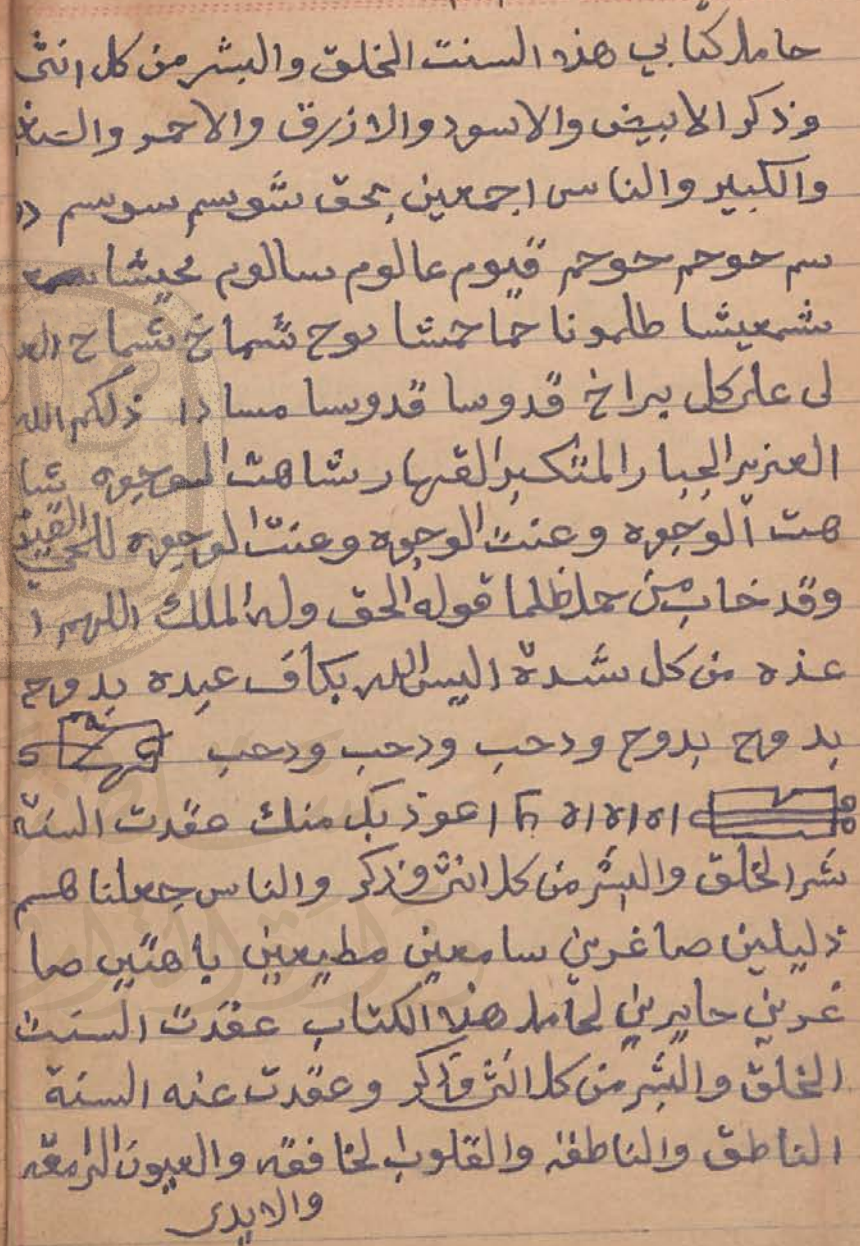 حامل كتابي هذه السنت الخلق والبشر من كل انثى
وذكر الابيض والاسود والازرق والاحمر
والكبير والناس اجمعين بحق شوسم سوسم دو
سم حوحم حوحم قيوم عالوم سالوم
شمعيشا طلمونا حما حمشا نوح شماخ شماخ العا
لى على كل براخ قدوسا قدوسا ذلكم الله
العزيز الجبار المتكبر القهار شاهت الوجوه شا
هت الوجوه وعنت الوجوه وعنت الوجوه للحي القيوم
وقد خاب من حمل ظلما قوله الحق وله الملك اللهم ا
عذه من كل شدة اليس الله بكاف عبده بدوح
بدوح بدوح ودحب ودحب ودحب
اعوذ بك منك عقدت السنة
شر الخلق والبشر من كل انثى وذكر والناس جعلناهم
ذليلين صاغرين سامعين مطيعين باهتين صا
غرين حايرين لحامل هذا الكتاب عقدت السنت
الخلق والبشر من كل انثى وذكر وعقدت عنه السنة
الناطق والناطقة والقلوب الخافقه والعيون الرامقه
والايدى